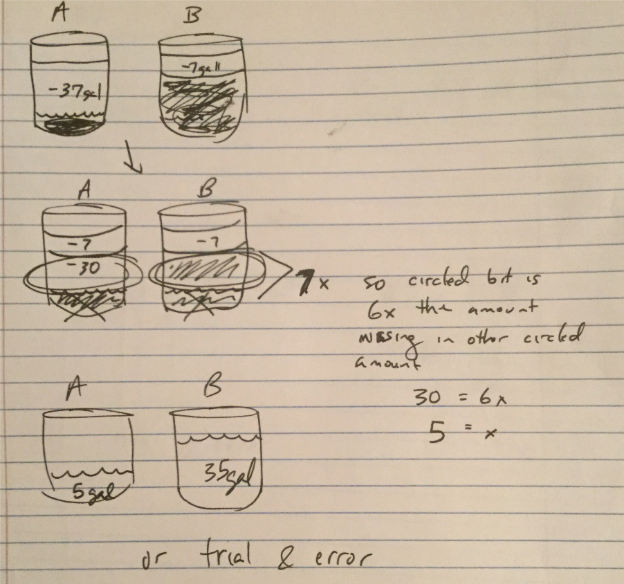 A B
-37gal -7gall
A B
-7 -7
-30
7x so circled bit is
6x the amount
missing in other circled
amount
30 = 6x
5 = x
A B
5gal 35gal
or trial & error